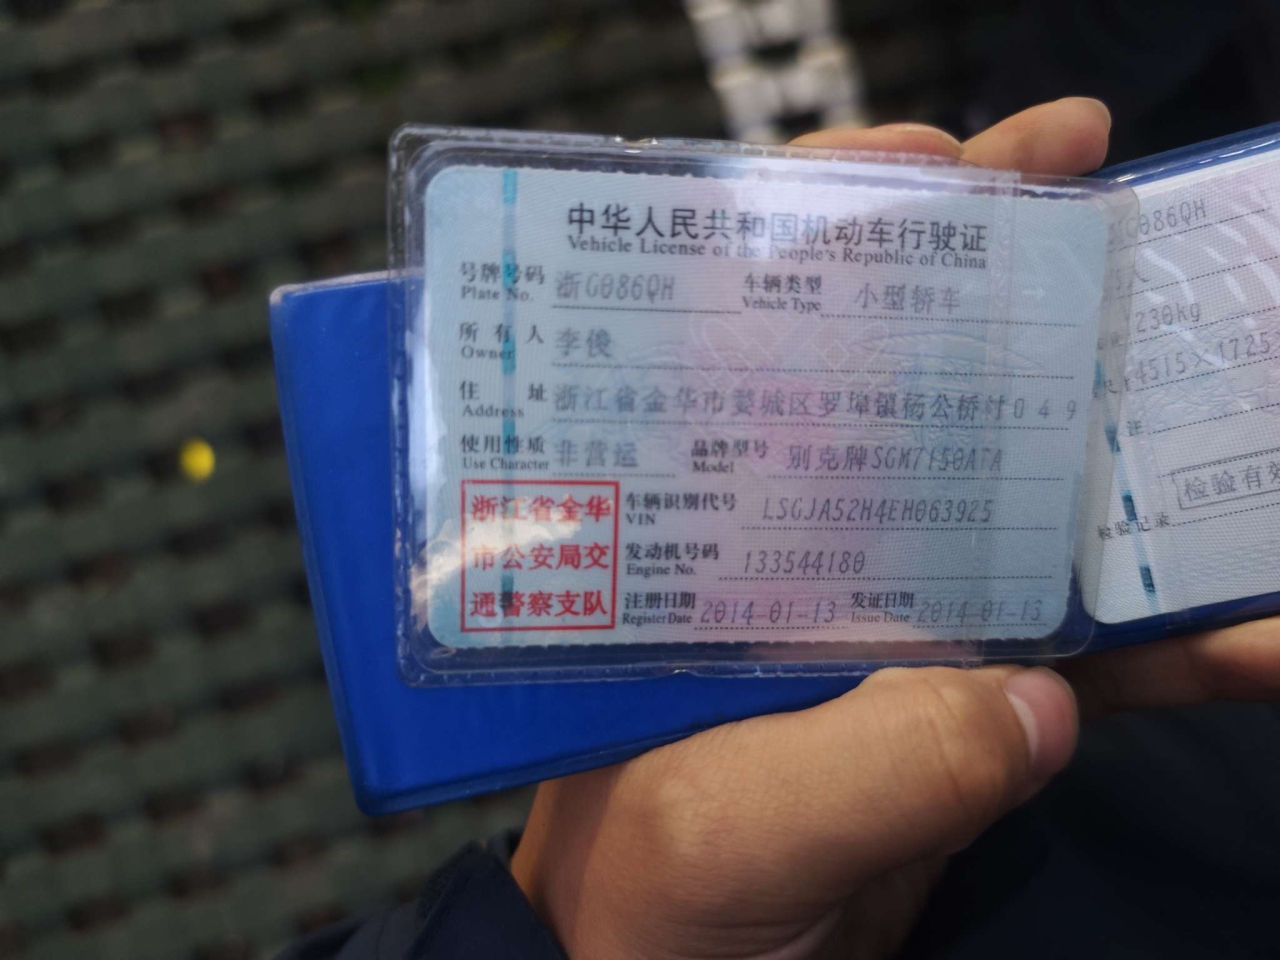 中华人民共和国机动车行驶证
Vehicle License of the People's Republic of China
号牌号码 浙G086QH 车辆类型 小型轿车
Plate No. Vehicle Type
所有人 李俊
Owner
住址 浙江省金华市婺城区罗埠镇杨公桥村049
Address
使用性质 非营运 品牌型号 别克牌SGM7150ATA
Use Character Model
浙江省金华
市公安局交
通警察支队
车辆识别代号 LSGJA52H4EH063925
VIN
发动机号码 133544180
Engine No.
注册日期 2014-01-13 发证日期 2014-01-13
Register Date Issue Date
G086QH
人
230kg
4515×1725×
注
检验有效
检验记录